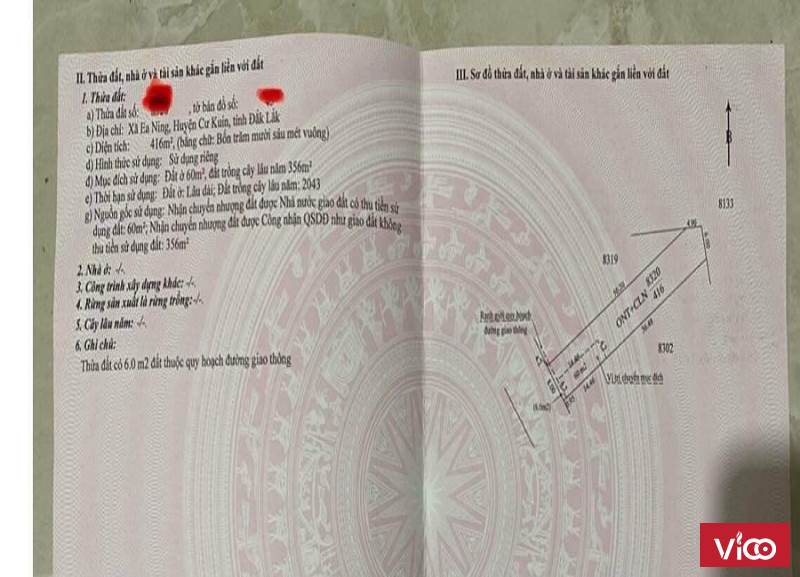 II. Thửa đất, nhà ở và tài sản khác gắn liền với đất
1. Thửa đất:
a) Thửa đất số: , tờ bản đồ số:
b) Địa chỉ: Xã Ea Ning, Huyện Cư Kuin, tỉnh Đắk Lắk
c) Diện tích: 416m², (bằng chữ: Bốn trăm mười sáu mét vuông)
d) Hình thức sử dụng: Sử dụng riêng
đ) Mục đích sử dụng: Đất ở 60m², đất trồng cây lâu năm 356m²
e) Thời hạn sử dụng: Đất ở: Lâu dài; Đất trồng cây lâu năm: 2043
g) Nguồn gốc sử dụng: Nhận chuyển nhượng đất được Nhà nước giao đất có thu tiền sử
dụng đất: 60m²; Nhận chuyển nhượng đất được Công nhận QSDĐ như giao đất không
thu tiền sử dụng đất: 356m²
2. Nhà ở: -/-.
3. Công trình xây dựng khác: -/-.
4. Rừng sản xuất là rừng trồng: -/-.
5. Cây lâu năm: -/-.
6. Ghi chú:
Thửa đất có 6.0 m2 đất thuộc quy hoạch đường giao thông
III. Sơ đồ thửa đất, nhà ở và tài sản khác gắn liền với đất
B
8133
8319
ONT+CLN 8320
416
8302
Ranh giới quy hoạch
đường giao thông
60 m²
Vị trí chuyển mục đích
(6.0m2)
Vico